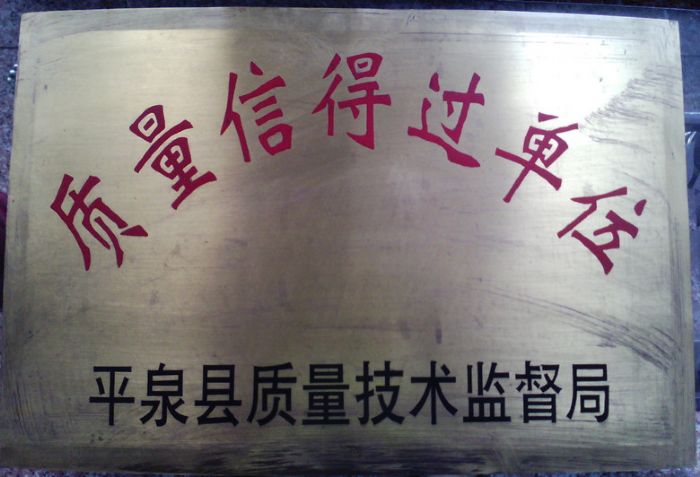 质量信得过单位
平泉县质量技术监督局